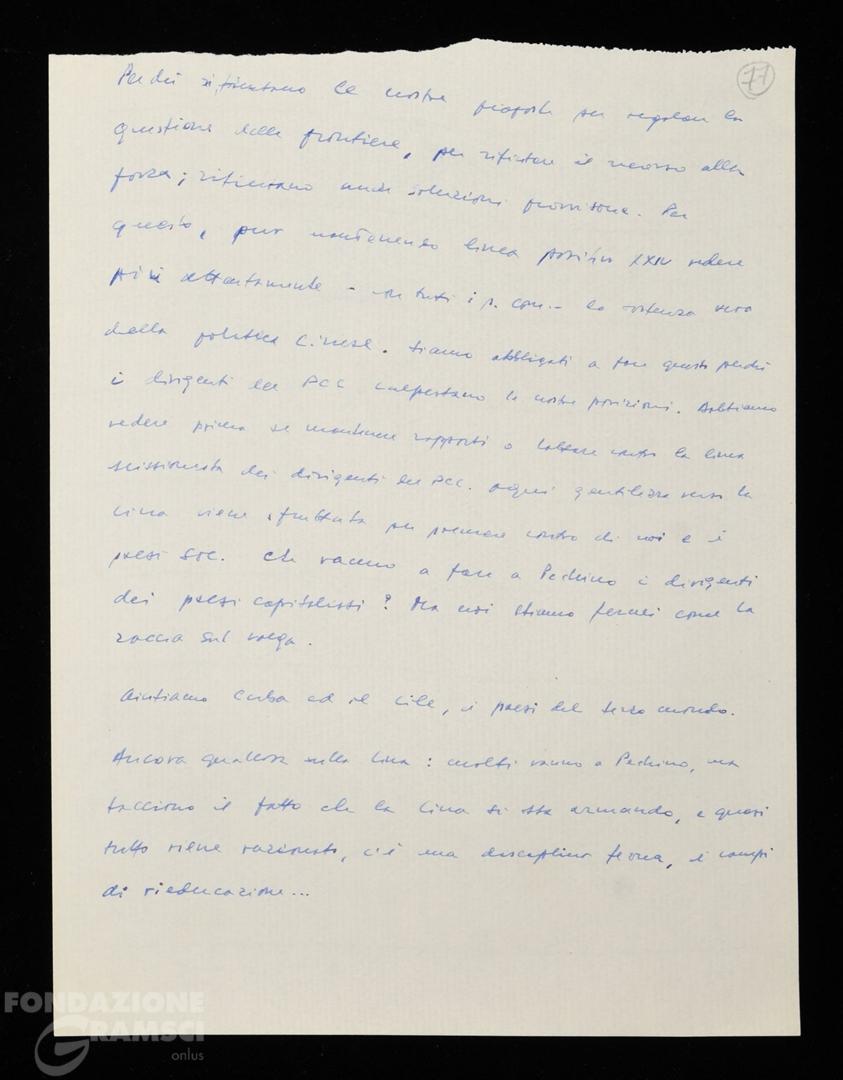 77
Perchè rifiutano le nostre proposte per regolare la
questione delle frontiere, per rifiutare il ricorso alla
forza; rifiutano anche soluzioni provvisorie. Per
questo, pur mantenendo linea positiva XXIV vedere
più attentamente - con tutti i p. com. - la sostanza vera
della politica cinese. Siamo obbligati a fare questo perchè
i dirigenti del PCC calpestano le nostre posizioni. Dobbiamo
vedere prima se mantenere rapporti o lottare contro la linea
scissionista dei dirigenti del PCC. Ogni gentilezza verso la
Cina viene sfruttata per premere contro di noi e i
paesi soc. Che vanno a fare a Pechino i dirigenti
dei paesi capitalisti? Ma noi stiamo fermi come la
roccia sul Volga.
Aiutiamo Cuba ed il Cile, i paesi del terzo mondo.
Ancora qualcosa sulla Cina: molti vanno a Pechino, ma
tacciono il fatto che la Cina si sta armando, e quasi
tutto viene razionato, c'è una disciplina ferrea, i campi
di rieducazione...
FONDAZIONE
GRAMSCI
onlus